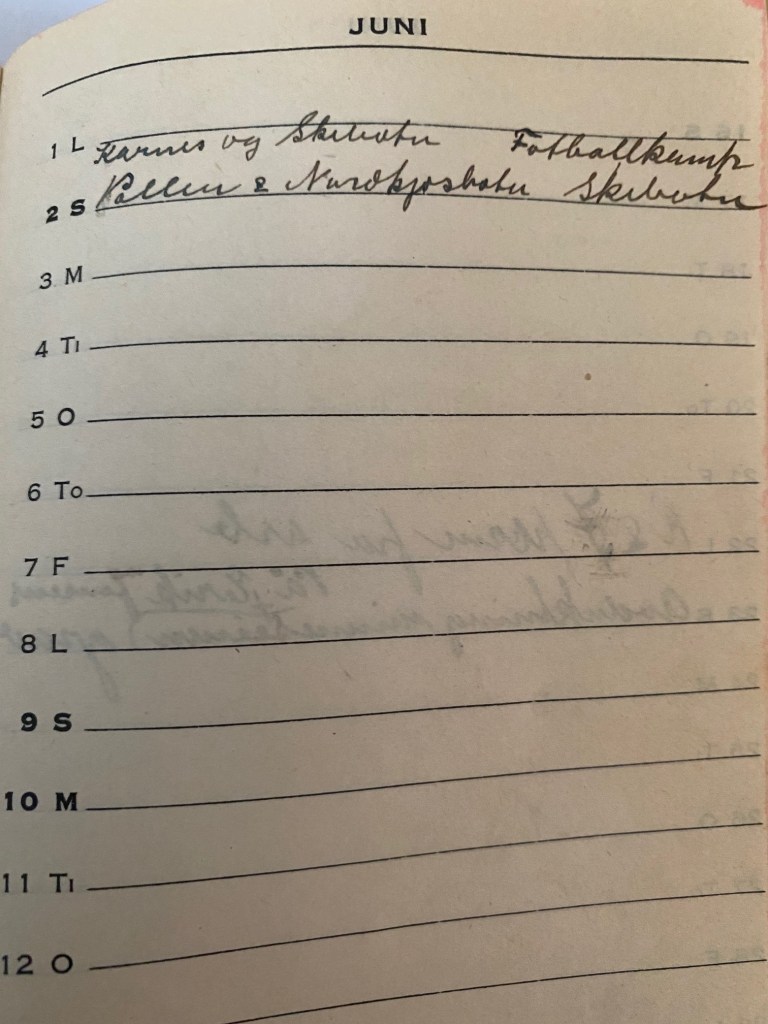 JUNI
1 L Karnes og Skibotn Fotballkamp
2 S Pollen & Nordkjosbotn Skibotn
3 M
4 TI
5 O
6 TO
7 F
8 L
9 S
10 M
11 TI
12 O